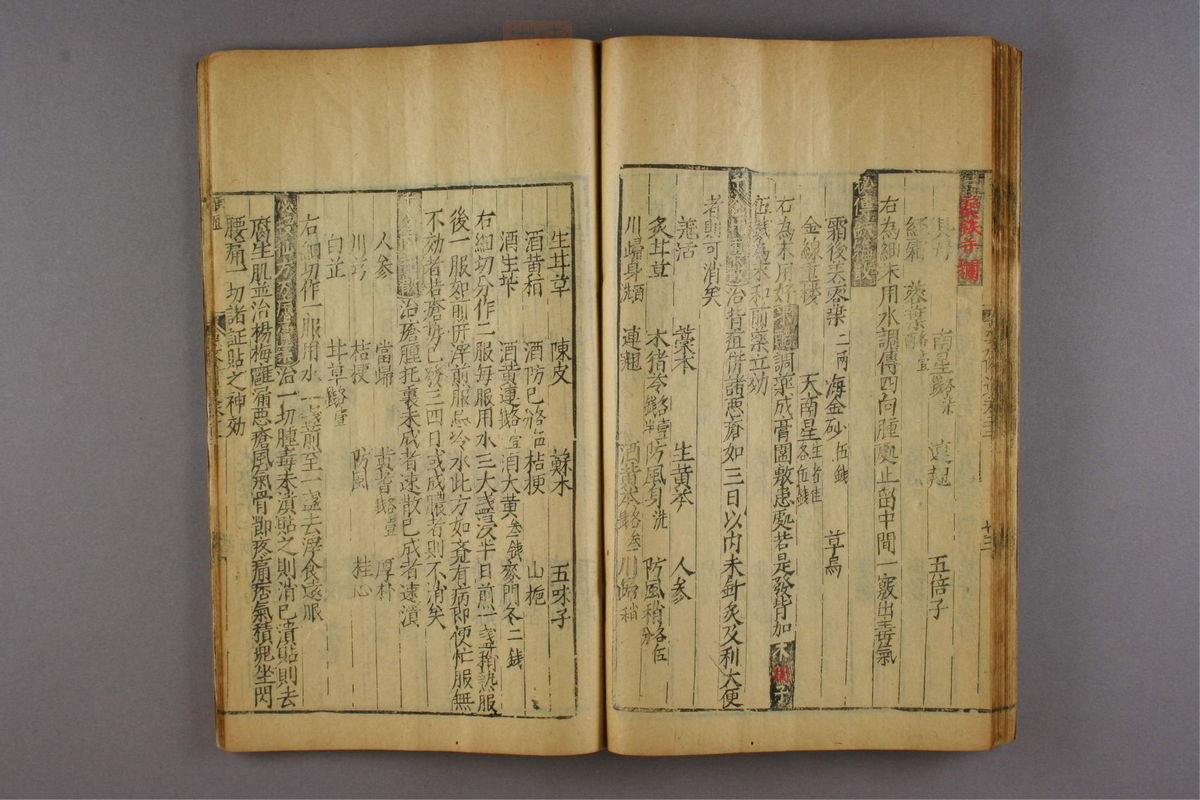 南星 連翹 五倍子
右為細末用水調傅四向腫處止留中間一竅出毒氣
霜後芙蓉葉二兩 海金砂伍錢 草烏
金線重樓 天南星生者佳各伍錢
右為末用好調藥成膏圍敷患處若是發背加木子
伍錢為末和前藥立効
治背疽併諸惡瘡如三日以内未針灸及利大便
者則可消矣
羗活 藁本 生黃芩 人參
炙甘草 木猪苓 防風身洗 防風稍各伍
川歸身酒洗 連翹 酒黃芩各叁錢 川歸稍
生甘草 陳皮 蘇木 五味子
酒黃柏 酒防己各伍 桔梗 山梔
酒生地 酒黃連 酒大黃叁錢 麥門冬二錢
右細切分作二服每服用水三大盞浸半日煎一盞稍熱服
後一服如前併滓前服忌冷水此方如覺有病即便忙服無
不効者若瘡瘍已發三四日或成膿者則不消矣
治瘡腫托裏未成者速散已成者速潰
人參 當歸 黃芪 厚朴
川芎 桔梗 防風 桂心
白芷 甘草
右細切作一服用水一盞煎至一盞去滓食遠服
治一切腫毒未潰貼之則消已潰貼則去
腐生肌並治楊梅癰漏惡瘡風氣骨節疼痛痞氣積塊坐閃
腰痛一切諸証貼之神効